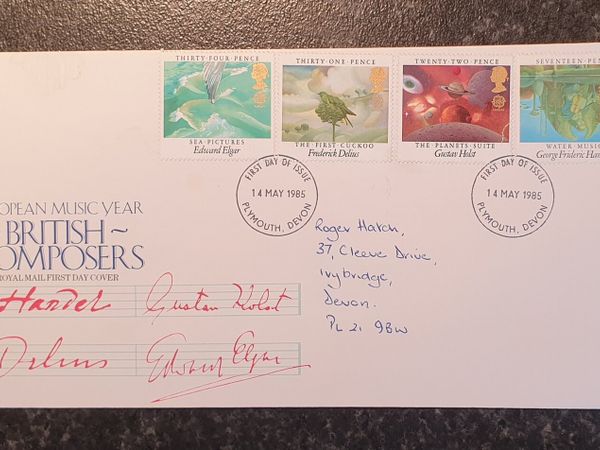 THIRTY·FOUR·PENCE
SEA·PICTURES
Edward Elgar
THIRTY·ONE·PENCE
THE·FIRST·CUCKOO
Frederick Delius
TWENTY·TWO·PENCE
THE·PLANETS·SUITE
Gustav Holst
SEVENTEEN·PEN
WATER·MUSIC
George Frideric Han
FIRST DAY OF ISSUE
14 MAY 1985
PLYMOUTH, DEVON
FIRST DAY OF ISSUE
14 MAY 1985
PLYMOUTH, DEVON
OPEAN MUSIC YEAR
BRITISH~
OMPOSERS
ROYAL MAIL FIRST DAY COVER
Handel
Gustav Holst
Delius
Edward Elgar
Roger Hatch,
37, Cleeve Drive,
Ivybridge,
Devon.
PL 21 9BW